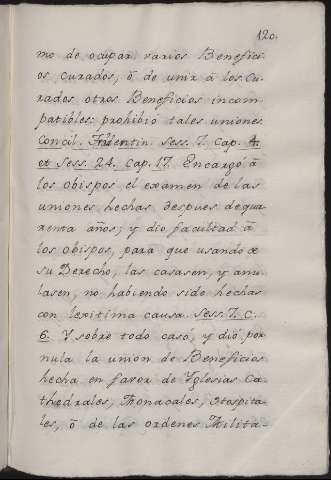 120.
mo de ocupar varios Benefici-
os curados, ô de unir â los Cu-
rados otros Beneficios incom-
patibles: prohibió tales uniones
Concil. Tridentin. Sess. 7. Cap. 4.
et Sess. 24. Cap. 17. Encargó â
los obispos el exâmen de las
uniones hechas despues de qua-
renta años; y dio facultad â
los obispos, para que usando de
su Derecho, las casasen, y anu-
lasen, no habiendo sido hechas
con lexitima causa. Sess. 7. C.
6. Y sobre todo casó, y dió por
nula la union de Beneficios
hecha en favor de Yglesias Ca-
thedrales, Monacales, Hospita-
les, ô de las ordenes Milita-